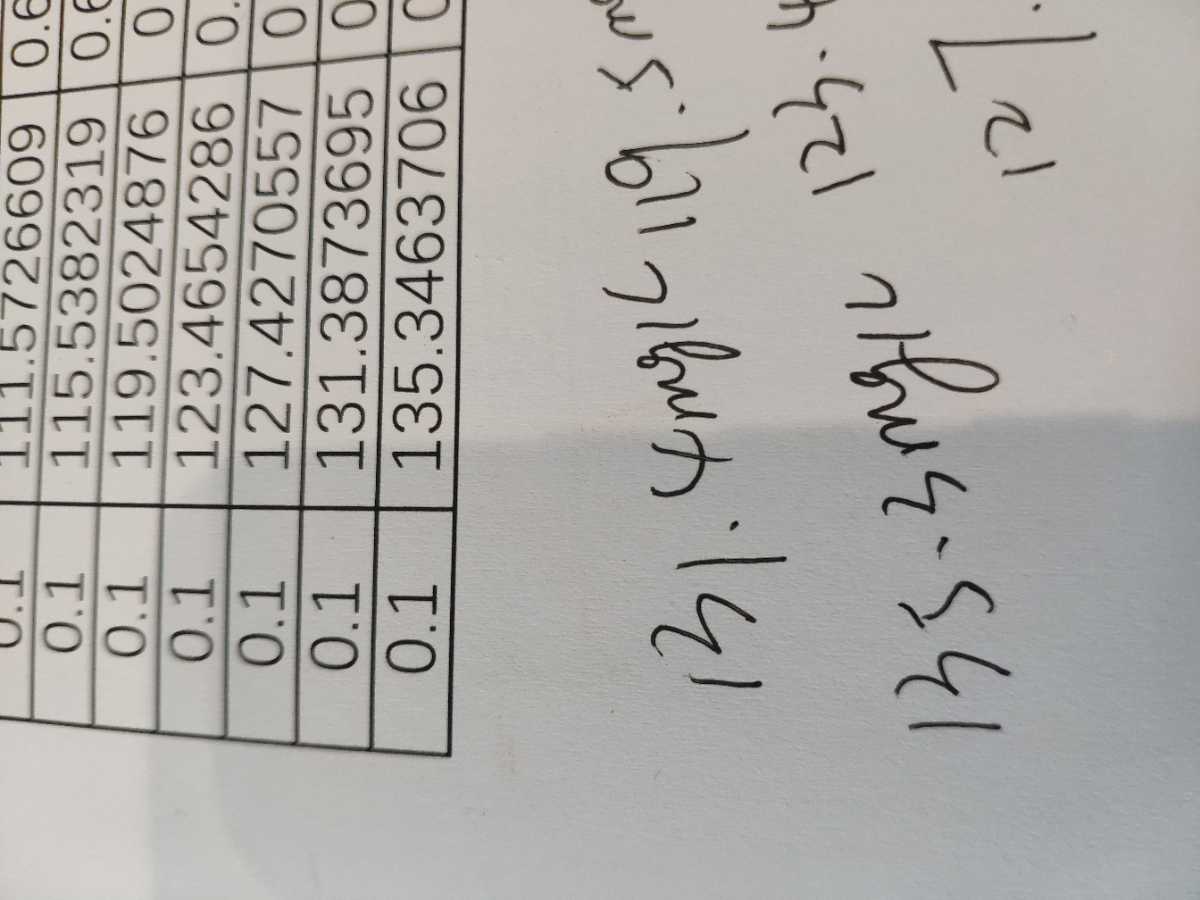 0.1 111.5726609 0.6
0.1 115.5382319 0.6
0.1 119.5024876 0
0.1 123.4654286 0.
0.1 127.4270557 0
0.1 131.3873695 0
0.1 135.3463706 0
131.4 mg/L 119.5 m
135.3 mg/L 123.4
127.